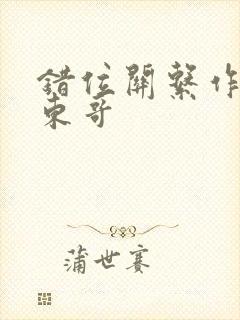 錯位關繫作
東哥
蒲世賽